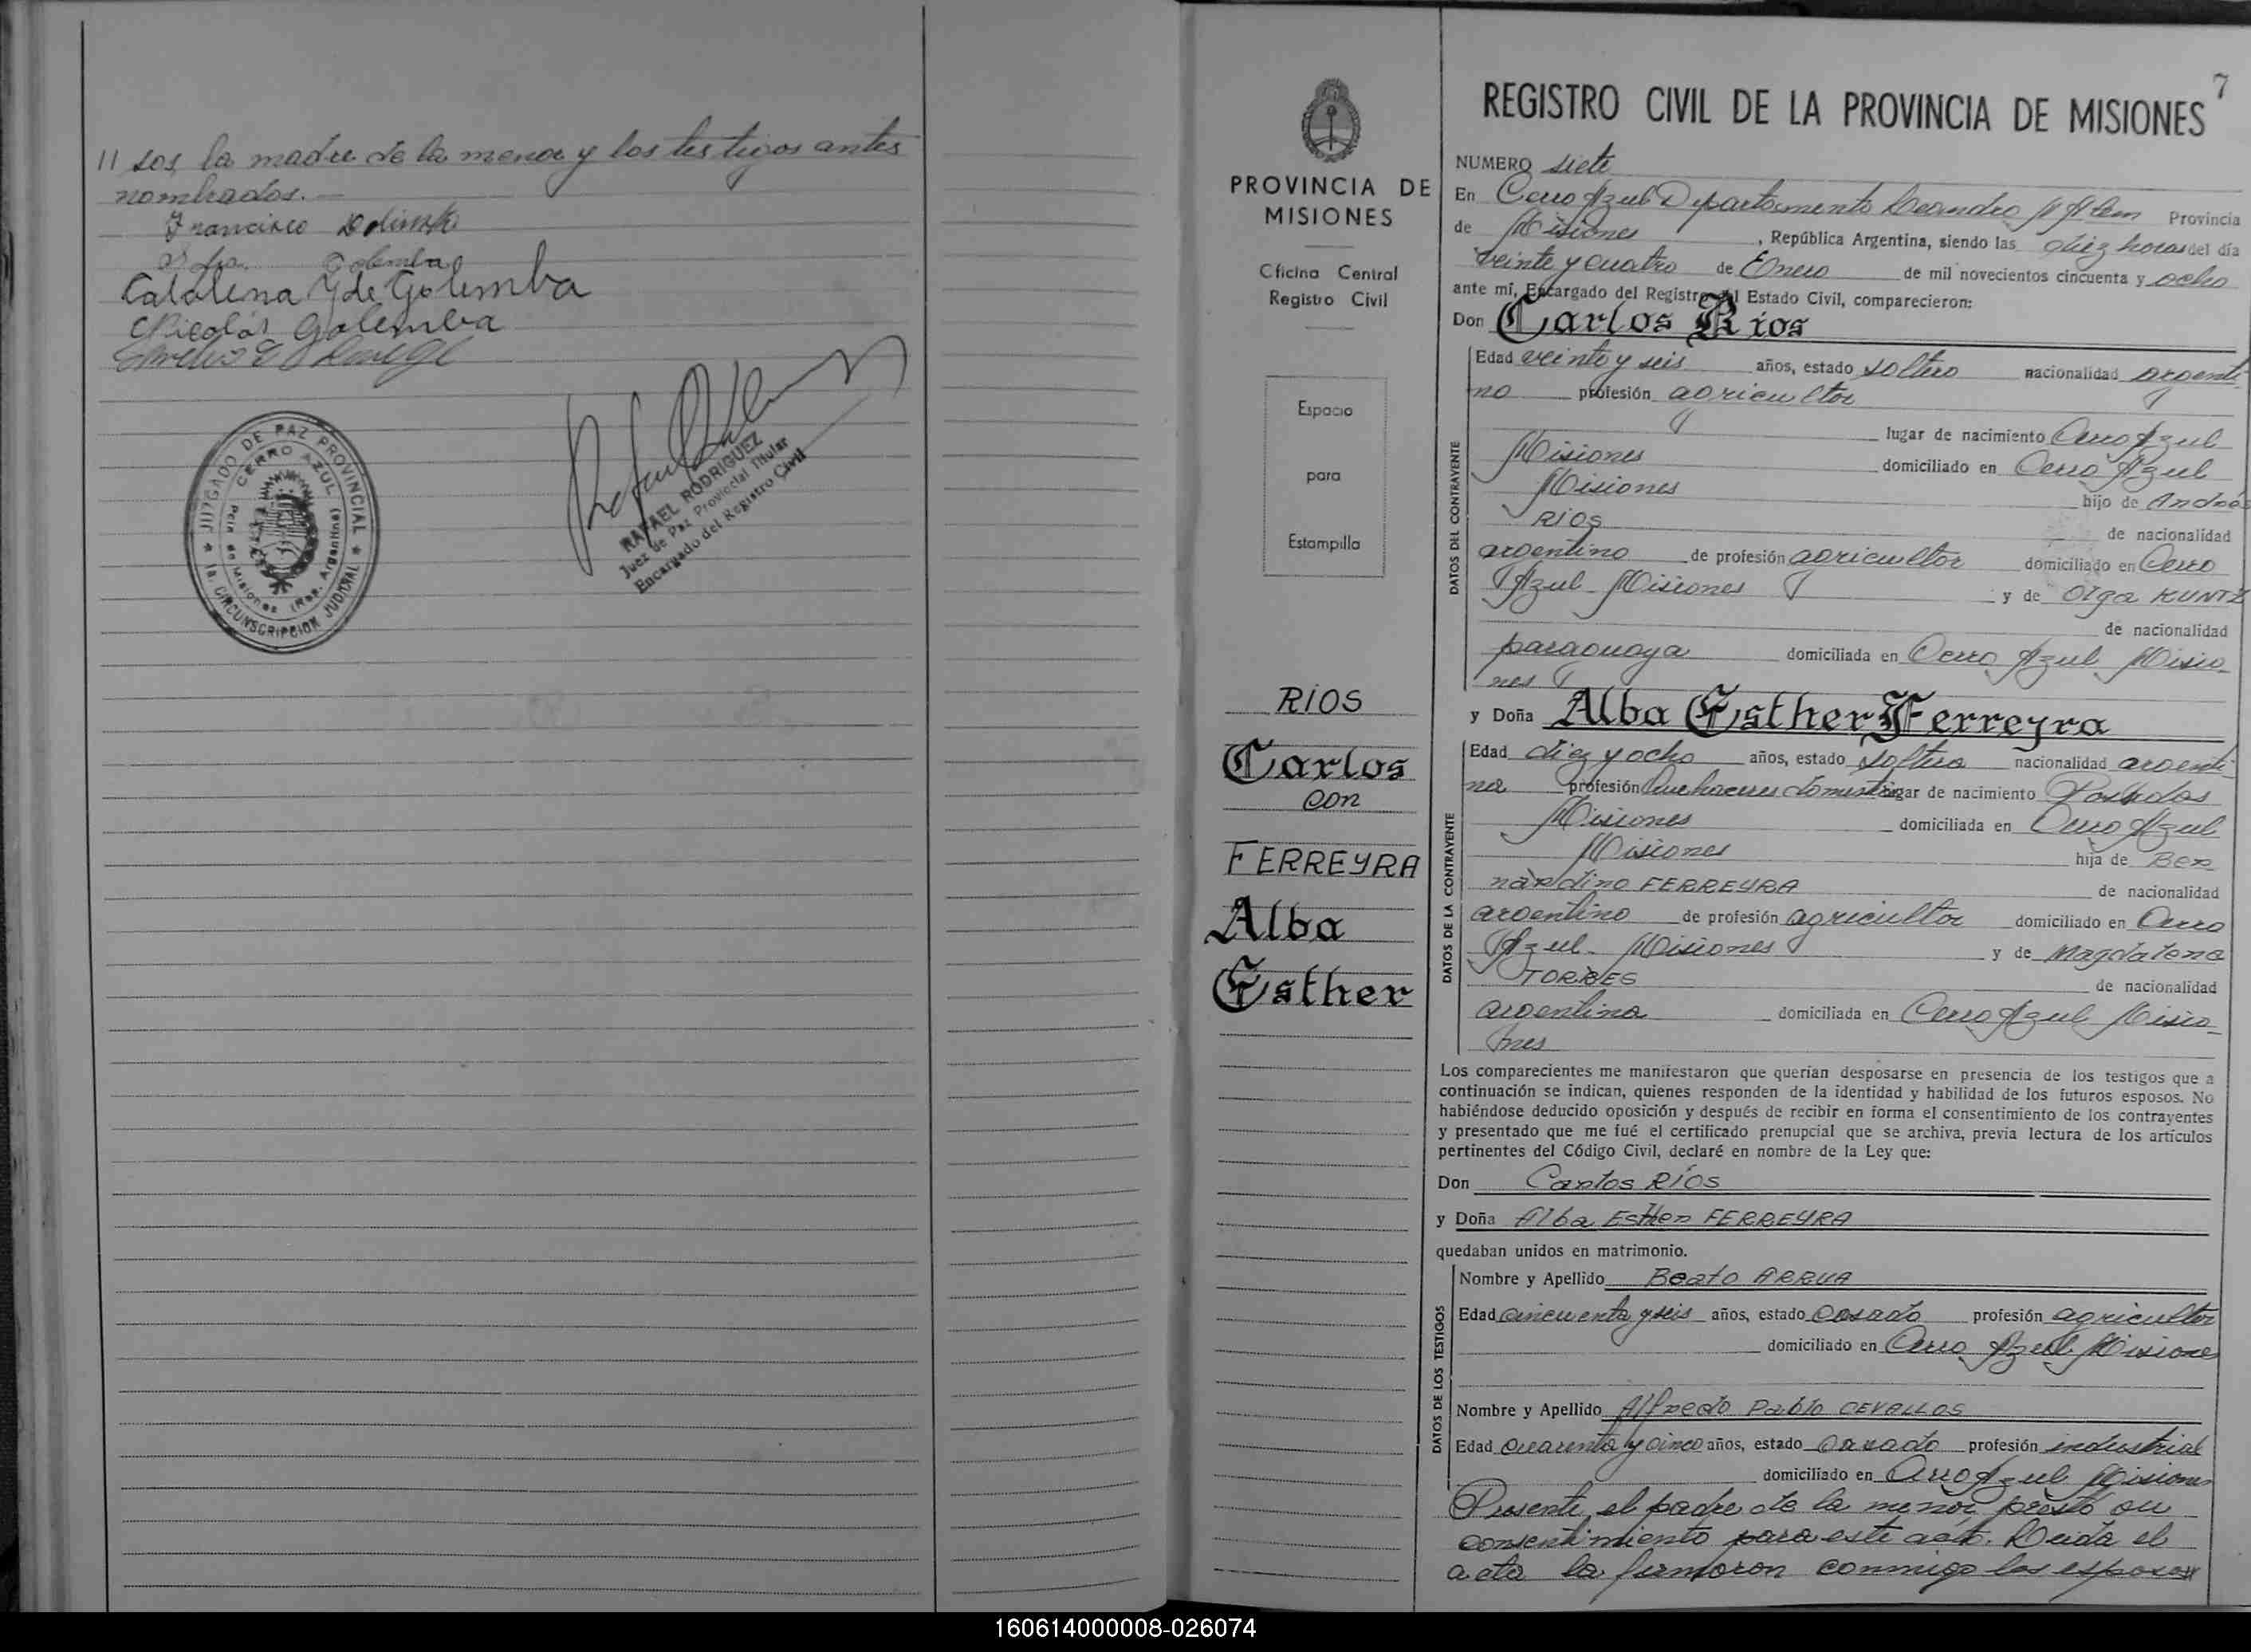 // sos, la madre de la menor y los testigos antes
nombrados.—
Francisco
Golemba
Catalina Y de Golemba
Nicolás Golemba
JUZGADO DE PAZ PROVINCIAL
CERRO AZUL
Pcia de Misiones (Rep. Argentina)
1a. CIRCUNSCRIPCION JUDICIAL
RAFAEL RODRIGUEZ
Juez de Paz Provincial Titular
Encargado del Registro Civil
PROVINCIA DE
MISIONES
Oficina Central
Registro Civil
Espacio
para
Estampilla
RÍOS
Carlos
con
FERREYRA
Alba
Esther
7
REGISTRO CIVIL DE LA PROVINCIA DE MISIONES
NUMERO siete
En Cerro Azul Departamento Leandro N Alem Provincia
de Misiones, República Argentina, siendo las diez horas del día
veinte y cuatro de Enero de mil novecientos cincuenta y ocho
ante mí, Encargado del Registro del Estado Civil, comparecieron:
Don Carlos Rios
DATOS DEL CONTRAYENTE
Edad veinte y seis años, estado soltero nacionalidad argenti-
no profesión agricultor
lugar de nacimiento Cerro Azul
Misiones domiciliado en Cerro Azul
Misiones hijo de Andrés
RIOS de nacionalidad
argentino de profesión agricultor domiciliado en Cerro
Azul - Misiones y de Olga KUNTZ
de nacionalidad
paraguaya domiciliada en Cerro Azul Misio-
nes
y Doña Alba Esther Ferreyra
DATOS DE LA CONTRAYENTE
Edad diez y ocho años, estado soltera nacionalidad argenti-
na profesión Quehaceres domest. lugar de nacimiento Posadas
Misiones domiciliada en Cerro Azul
Misiones hija de Ber
nardino FERREYRA de nacionalidad
argentino de profesión agricultor domiciliado en Cerro
Azul - Misiones y de Magdalena
TORRES de nacionalidad
argentina domiciliada en Cerro Azul Misio-
nes
Los comparecientes me manifestaron que querían desposarse en presencia de los testigos que a
continuación se indican, quienes responden de la identidad y habilidad de los futuros esposos. No
habiéndose deducido oposición y después de recibir en forma el consentimiento de los contrayentes
y presentado que me fué el certificado prenupcial que se archiva, previa lectura de los artículos
pertinentes del Código Civil, declaré en nombre de la Ley que:
Don Carlos RÍOS
y Doña Alba Esther FERREYRA
quedaban unidos en matrimonio.
DATOS DE LOS TESTIGOS
Nombre y Apellido Beato ARRUA
Edad cincuenta y seis años, estado casado profesión agricultor
domiciliado en Cerro Azul Misiones
Nombre y Apellido Alfredo Pablo CEVALLOS
Edad cuarenta y cinco años, estado casado profesión industrial
domiciliado en Cerro Azul Misiones
Presente, el padre de la menor prestó su
consentimiento para este acto. Leida el
acta la firmaron conmigo los esposos
160614000008-026074